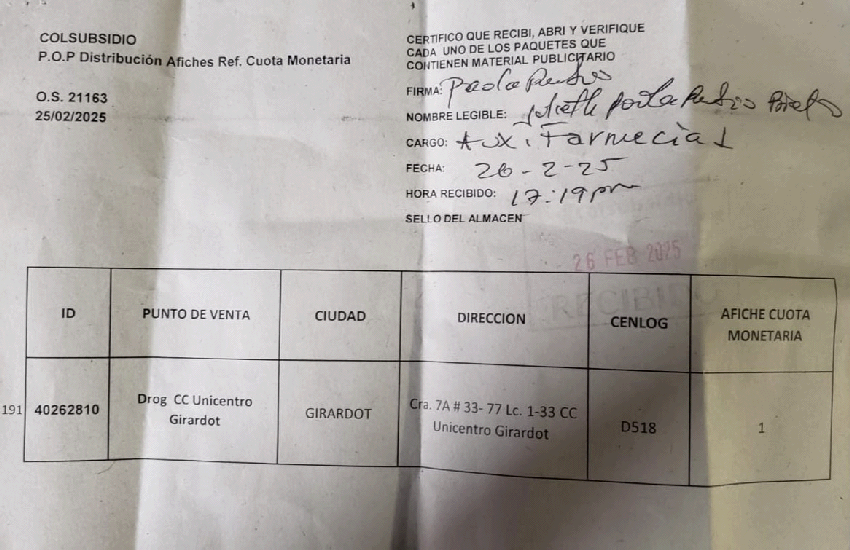 COLSUBSIDIO
P.O.P Distribución Afiches Ref. Cuota Monetaria
O.S. 21163
25/02/2025
CERTIFICO QUE RECIBI, ABRI Y VERIFIQUE
CADA UNO DE LOS PAQUETES QUE
CONTIENEN MATERIAL PUBLICITARIO
FIRMA: Paola
NOMBRE LEGIBLE: Paola
CARGO: Aux. Farmecia 1
FECHA: 26-2-25
HORA RECIBIDO: 17:19pm
SELLO DEL ALMACEN
26 FEB 2025
RECIBIDO
ID PUNTO DE VENTA CIUDAD DIRECCION CENLOG AFICHE CUOTA MONETARIA
191 40262810 Drog CC Unicentro Girardot GIRARDOT Cra. 7A # 33- 77 Lc. 1-33 CC Unicentro Girardot D518 1